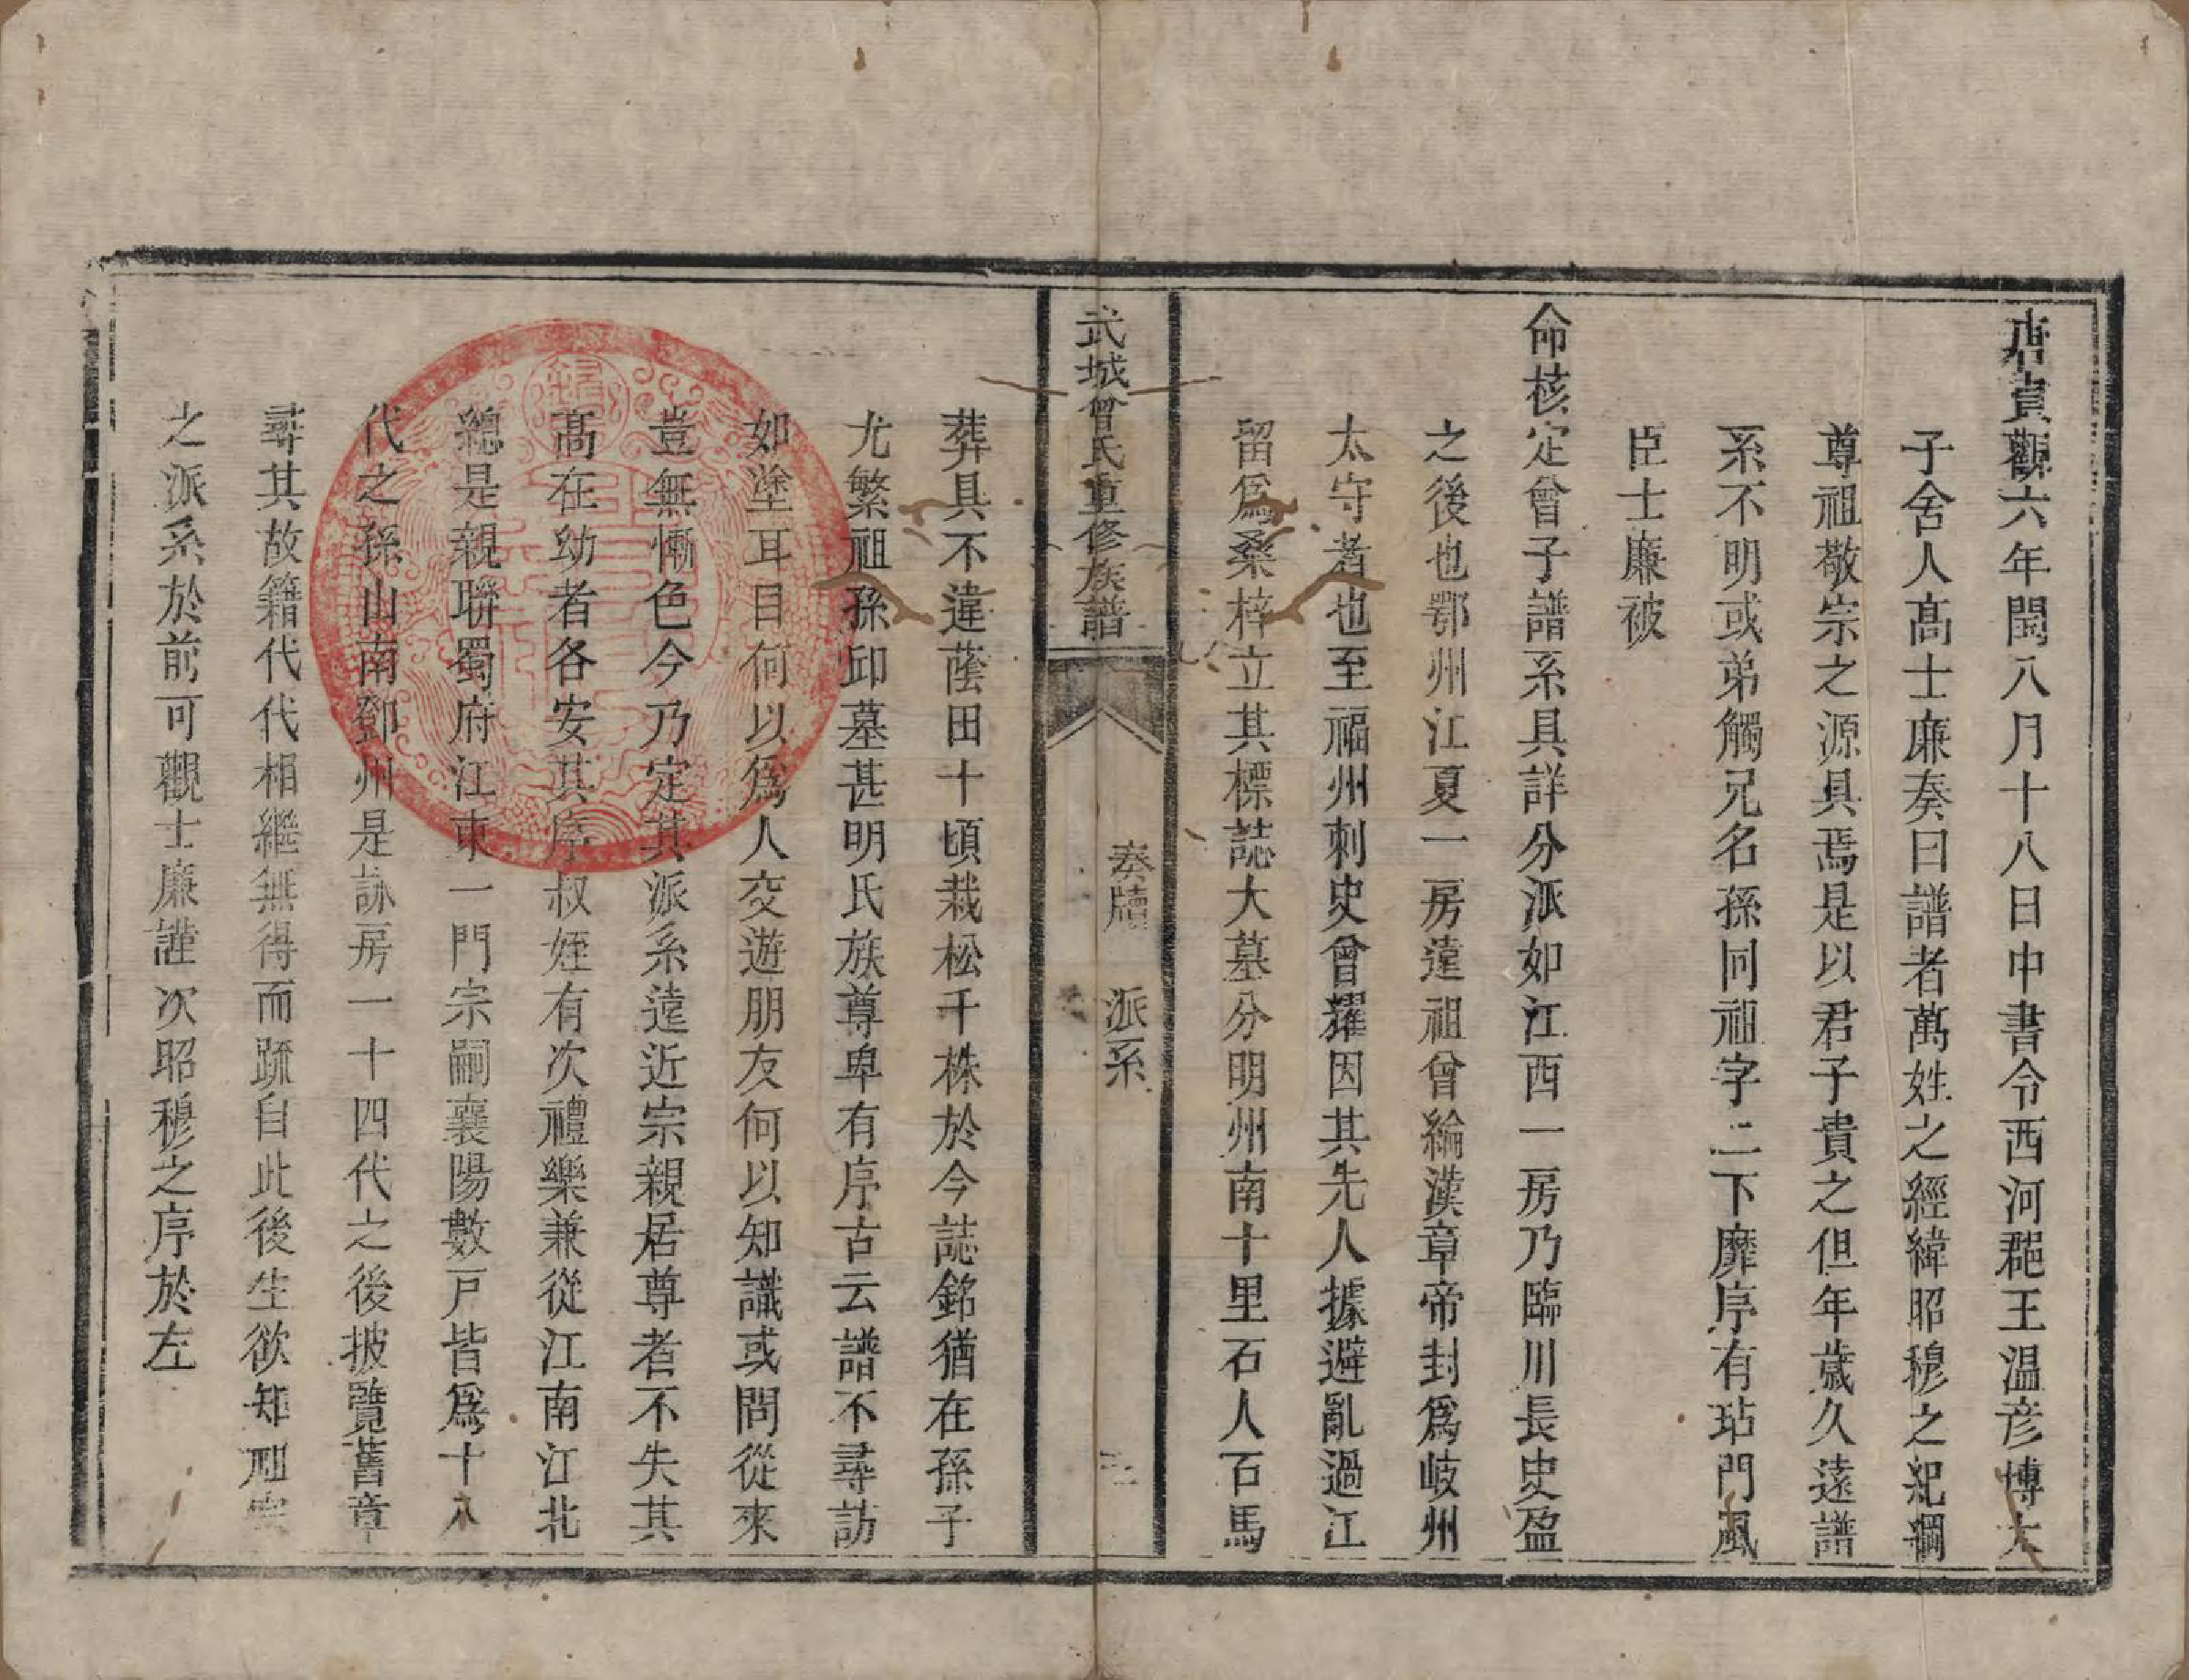 唐貞觀六年閏八月十八日中書令西河郡王温彦博太
子舍人高士廉奏曰譜者萬姓之經緯昭穆之紀綱
尊祖敬宗之源具焉是以君子貴之但年歲久遠譜
系不明或弟觸兄名孫同祖字二下靡序有玷門風
臣士廉被
命核定曾子譜系具詳分派如江西一房乃臨川長史盈
之後也鄂州江夏一房遠祖曾綸漢章帝封爲岐州
太守者也至福州刺史曾耀因其先人據避亂過江
留爲桑梓立其標誌大墓分明州南十里石人石馬
武城曾氏重修族譜
奏牘 派系
二
葬具不違蔭田十頃栽松千株於今誌銘猶在孫子
尤繁祖孫邱墓甚明氏族尊卑有序古云譜不尋訪
如塗耳目何以爲人交遊朋友何以知識或問從來
豈無慚色今乃定其派系遠近宗親居尊者不失其
高在幼者各安其序叔姪有次禮樂兼從江南江北
總是親聯蜀府江東一門宗嗣襄陽數戸皆爲十八
代之孫山南鄧州是詠房一十四代之後披覽舊章
尋其故籍代代相繼無得而踈自此後生欲知
之派系於前可觀士廉謹次昭穆之序於左